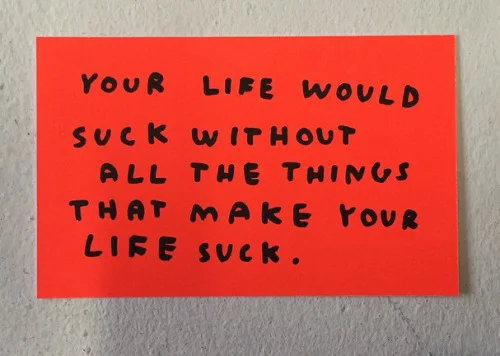 YOUR LIFE WOULD
SUCK WITHOUT
ALL THE THINGS
THAT MAKE YOUR
LIFE SUCK.